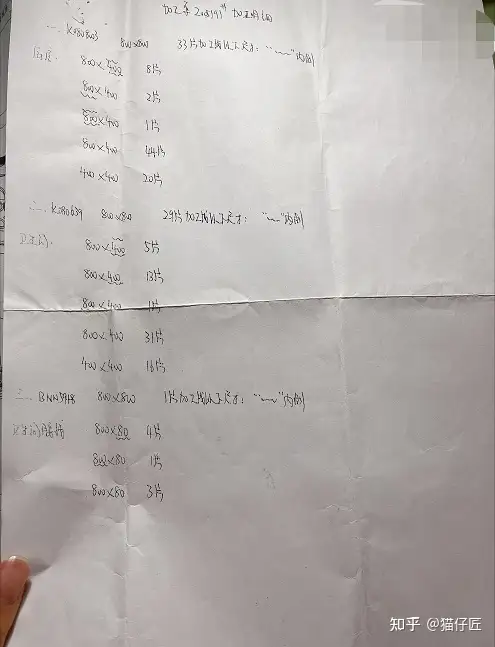 一、K280803 800×800 33片加工成以下尺寸："﹏"内倒
厨房: 800×400 8片
800×400 2片
800×400 1片
800×400 44片
400×400 20片
二、K280639 800×800 29片加工成以下尺寸："﹏"内倒
卫生间: 800×400 5片
800×400 13片
800×400 1片
800×400 31片
400×400 16片
三、 800×800 1片加工成以下尺寸："﹏"内倒
卫生间 800×80 4片
800×80 1片
800×80 3片
知乎 @猫仔匠